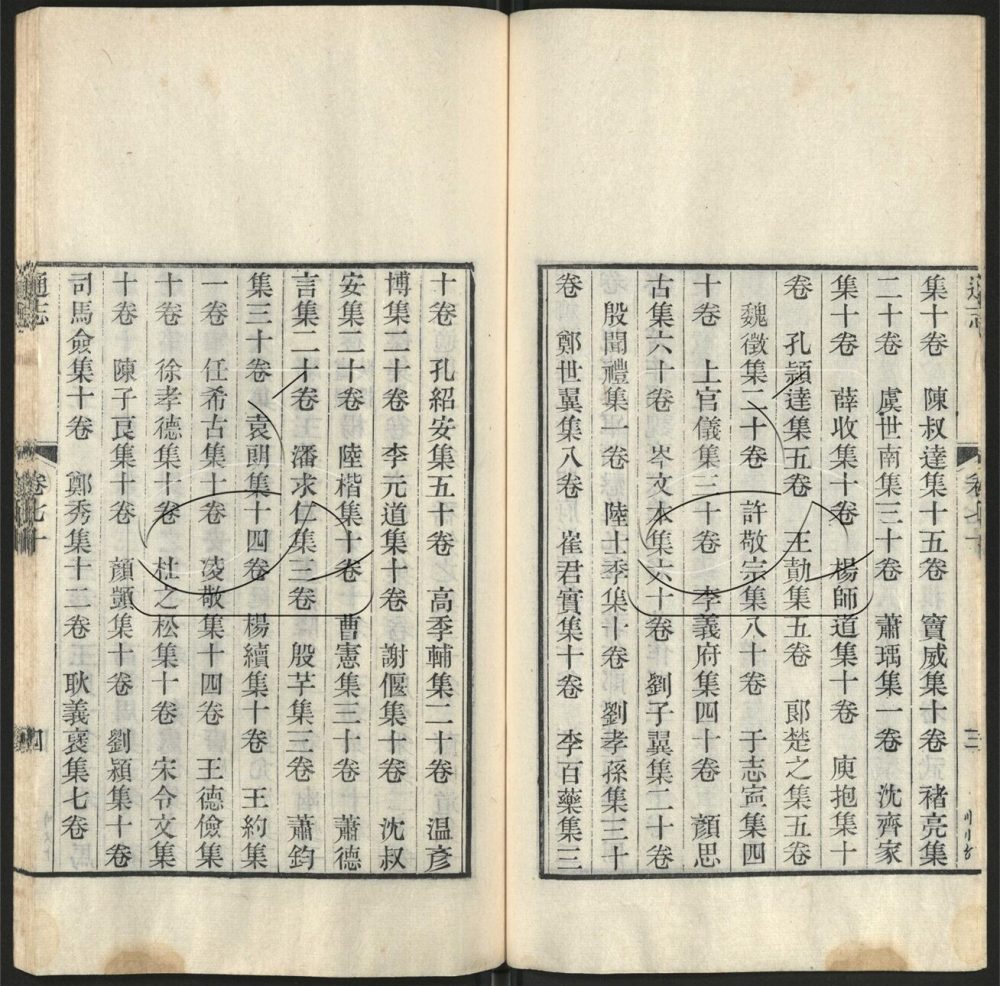 集十卷　陳叔達集十五卷　竇威集十卷　褚亮集
二十卷　虞世南集三十卷　蕭瑀集一卷　沈齊家
集十卷　薛收集十卷　楊師道集十卷　庾抱集十
卷　孔頴達集五卷　王勣集五卷　郎楚之集五卷
魏徵集二十卷　許敬宗集八十卷　于志寍集四
十卷　上官儀集三十卷　李義府集四十卷　顏思
古集六十卷　岑文本集六十卷　劉子翼集二十卷
殷聞禮集一卷　陸士季集十卷　劉孝孫集三十
卷　鄭世翼集八卷　崔君實集十卷　李百藥集三
十卷　孔紹安集五十卷　高季輔集二十卷　温彦
博集二十卷　李元道集十卷　謝偃集十卷　沈叔
安集二十卷　陸楷集十卷　曹憲集三十卷　蕭德
言集二十卷　潘求仁集三卷　殷芊集三卷　蕭鈞
集三十卷　袁朗集十四卷　楊續集十卷　王約集
一卷　任希古集十卷　凌敬集十四卷　王德儉集
十卷　徐孝德集十卷　杜之松集十卷　宋令文集
十卷　陳子良集十卷　顏顗集十卷　劉穎集十卷
司馬僉集十卷　鄭秀集十二卷　耿義襃集七卷
通志
卷七十
四